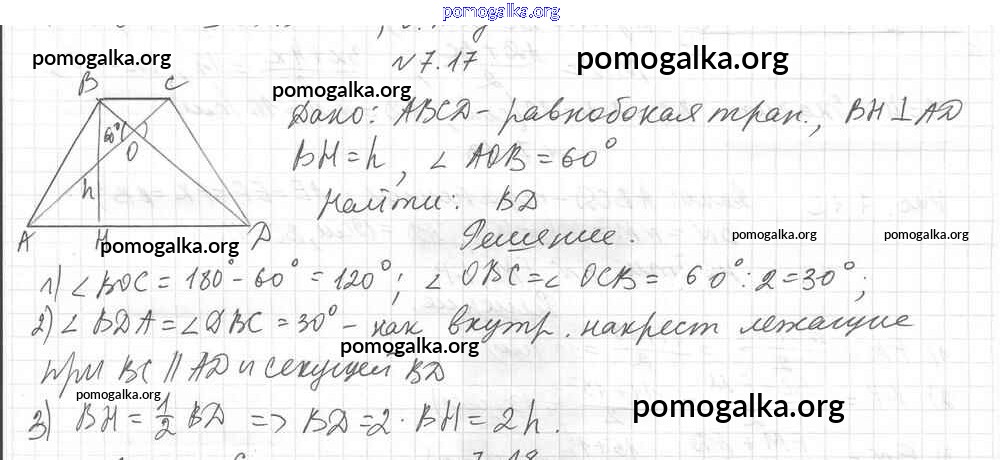 pomogalka.org
№7.17
pomogalka.org
pomogalka.org
pomogalka.org
B C
60°
O
h
A H D
Дано: ABCD - равнобокая трап., BH ⊥ AD
BH = h, ∠ AOB = 60°
Найти: BD
Решение.
pomogalka.org
pomogalka.org
pomogalka.org
1) ∠ BOC = 180° - 60° = 120°; ∠ OBC = ∠ OCB = 60° : 2 = 30°;
2) ∠ BDA = ∠ DBC = 30° - как внутр. накрест лежащие
pomogalka.org
при BC || AD и секущей BD
pomogalka.org
pomogalka.org
3) BH = 1/2 BD => BD = 2 · BH = 2h.